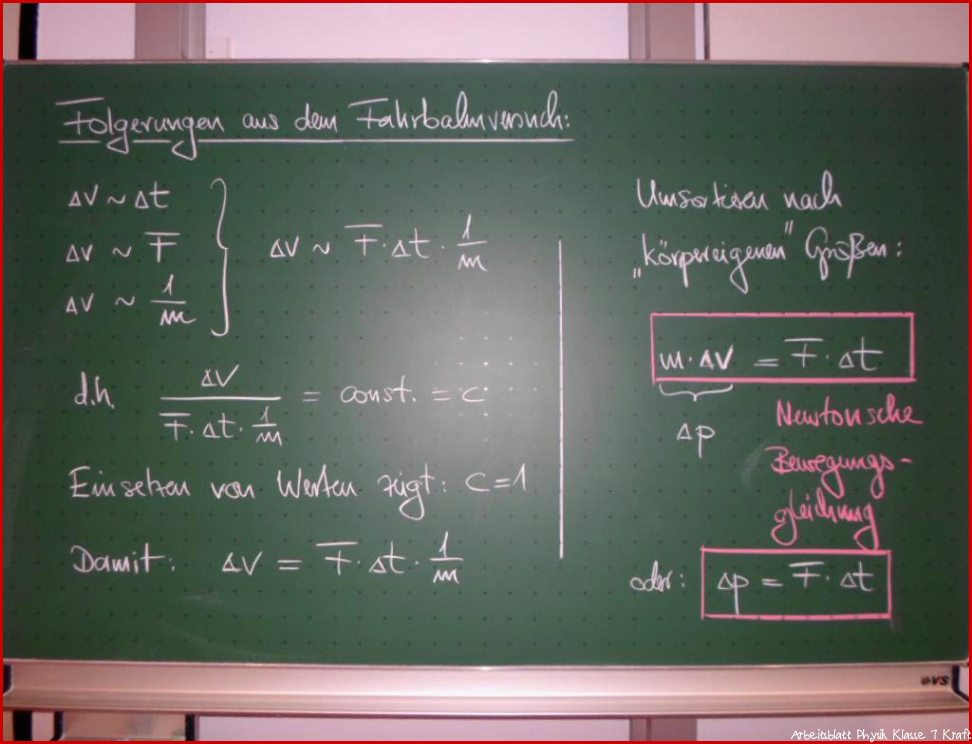 Folgerungen aus dem Fahrbahnversuch:
Δv ~ Δt
Δv ~ F
Δv ~ 1/m
Δv ~ F · Δt · 1/m
d.h. Δv / (F · Δt · 1/m) = const. = c
Einsetzen von Werten zeigt: c=1
Damit: Δv = F · Δt · 1/m
Umsortieren nach
„körpereigenen" Größen:
m · Δv = F · Δt
Δp
Newtonsche
Bewegungs-
gleichung
oder: Δp = F · Δt
VS
Arbeitsblatt Physik Klasse 7 Kraft